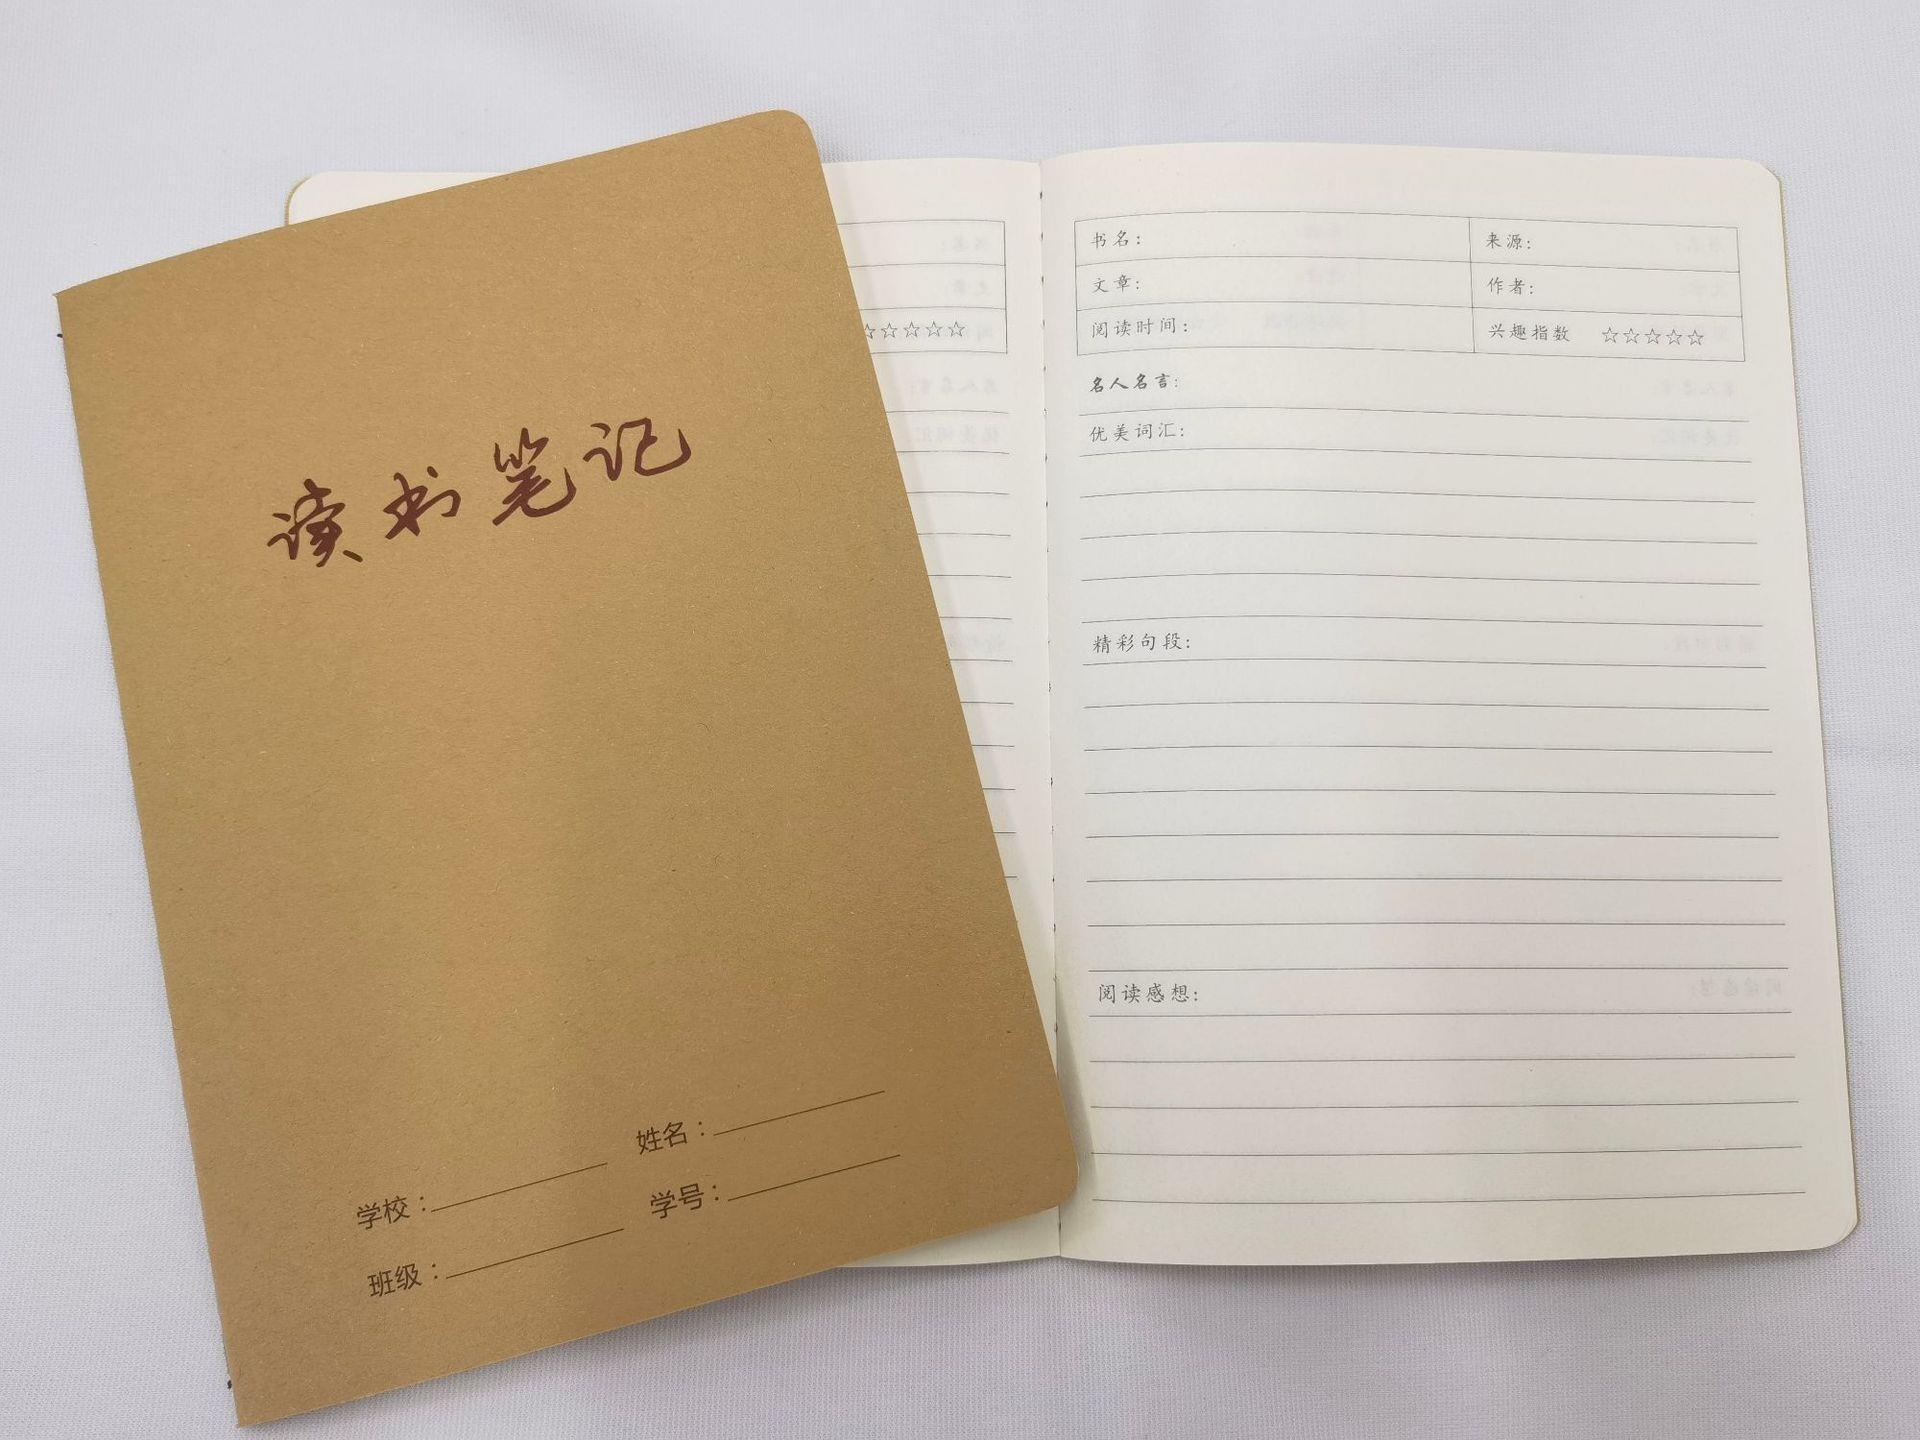 读书笔记
姓名：
学校：
学号：
班级：
☆☆☆☆☆
书名：
来源：
文章：
作者：
阅读时间：
兴趣指数 ☆☆☆☆☆
名人名言：
优美词汇：
精彩句段：
阅读感想：